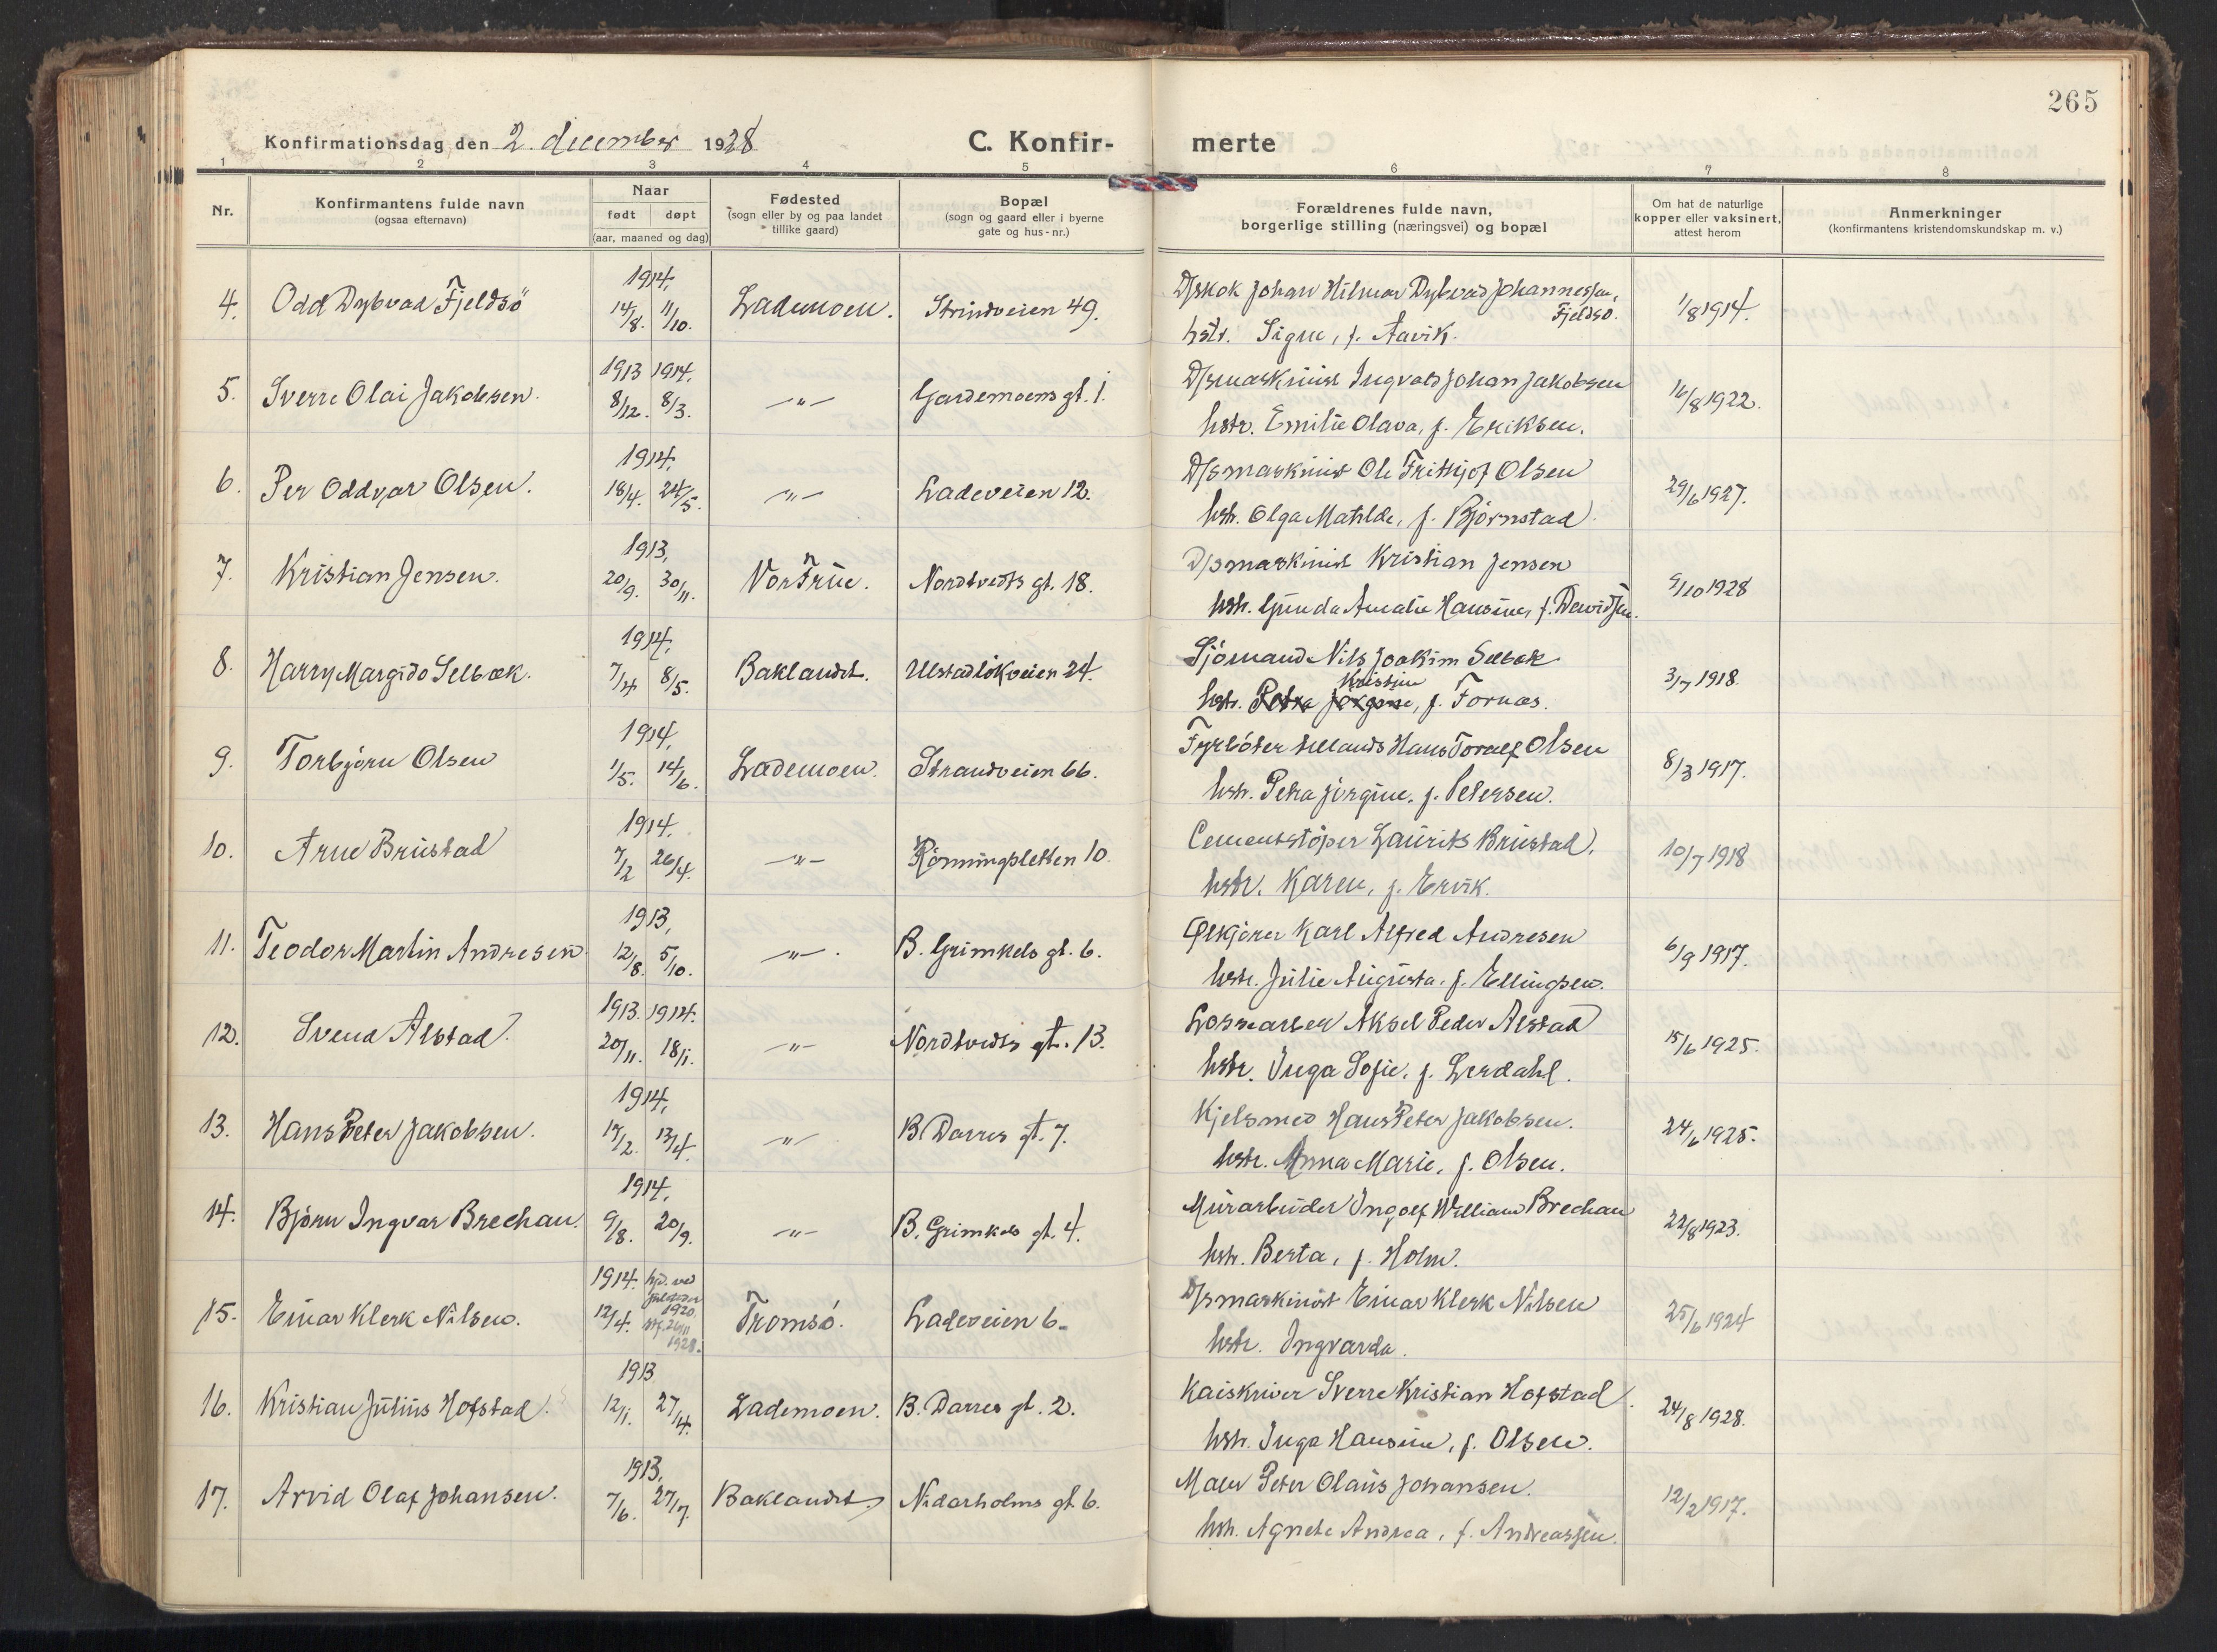 265
Konfirmationsdag den 2. december 1928
C. Konfir- merte
1 2 3 4 5 6 7 8
Nr.
Konfirmantens fulde navn
(ogsaa efternavn)
Naar
født døpt
(aar, maaned og dag)
Fødested
(sogn eller by og paa landet
tillike gaard)
Bopæl
(sogn og gaard eller i byerne
gate og hus-nr.)
Forældrenes fulde navn,
borgerlige stilling (næringsvei) og bopæl
Om hat de naturlige
kopper eller vaksinert,
attest herom
Anmerkninger
(konfirmantens kristendomskundskap m. v.)
4. Odd Dybvad Fjeldsö 1914, 14/8. 11/10. Lademoen. Strindveien 49. D/skok Johan Hilmar Dybvad Johannessen, Fjeldsö. 1/8 1914.
hstr. Signe, f. Aavik.
5. Sverre Olai Jakobsen. 1913 1914. 8/12. 8/3. -"- Gardemoens gt. 1. D/smaskinist Ingvald Johan Jakobsen 16/8 1922.
hstr. Emilie Olava, f. Eriksen.
6. Per Oddvar Olsen. 1914, 18/4. 24/5. -"- Ladeveien 12. D/smaskinist Ole Frithjof Olsen 29/6 1927.
hstr. Olga Matilde, f. Björnstad
7. Kristian Jensen. 1913, 20/9. 30/11. Vor Frue. Nordtvedts gt. 18. D/smaskinist Kristian Jensen 9/10 1928
hstr. Gunda Amalie Hansine, f. Davidsen.
8. Harry Margido Selbæk. 1914, 7/4 8/5. Baklandet. Ulstadlökveien 24. Sjömand Nils Joakim Selbæk 3/7 1918.
Kristine
hstr. Petra Jörgine, f. Fornæs.
9. Torbjörn Olsen 1914, 1/5. 14/6. Lademoen. Strandveien 66. Fyrböter tillands Hans Toralf Olsen 8/3 1917.
hstr. Petra Jörgine, f. Petersen.
10. Arne Brustad 1914, 7/2 26/4. -"- Rönningsletten 10. Cementstöper Laurits Brustad. 10/7 1918
hstr. Karen, f. Ervik.
11. Teodor Martin Andresen 1913, 12/8. 5/10. -"-. B. Grimkels gt. 6. Ölkjörer Karl Alfred Andresen 6/9 1917.
hstr. Julie Augusta, f. Ellingsen.
12. Svend Alstad. 1913. 1914. 20/11. 18/1. -"- Nordtvedts gt. 13. Lossearber Aksel Peder Alstad 15/6 1925.
hstr. Inga Sofie, f. Lerdahl.
13. Hans Peter Jakobsen. 1914, 17/2. 13/4. -"- B. Darres gt. 7. Kjelsmed Hans Peter Jakobsen. 24/6 1925.
hstr. Anna Marie, f. Olsen.
14. Björn Ingvar Brechan. 1914, 9/8. 20/9. -"- B. Grimkels gt. 4. Murarbeider Ingolf William Brechan 22/8 1923.
hstr. Berta, f. Holm.
15. Einar Klerk Nilsen. 1914. 12/4. hjd. ved 1920. 1928. Tromsö. Ladeveien 6. D/smaskinist Einar Klerk Nilsen 25/6 1924
hstr. Ingvarda.
16. Kristian Julius Hofstad. 1913 12/1. 27/4. Lademoen. B. Darres gt. 2. Kaiskriver Sverre Kristian Hofstad. 24/8 1928.
hstr. Inga Hansine, f. Olsen.
17. Arvid Olaf Johansen. 1913, 7/6. 27/7. Baklandet. Nidarholms gt. 6. Maler Peter Olaus Johansen. 12/2 1917.
hstr. Agnete Andrea, f. Andreassen.